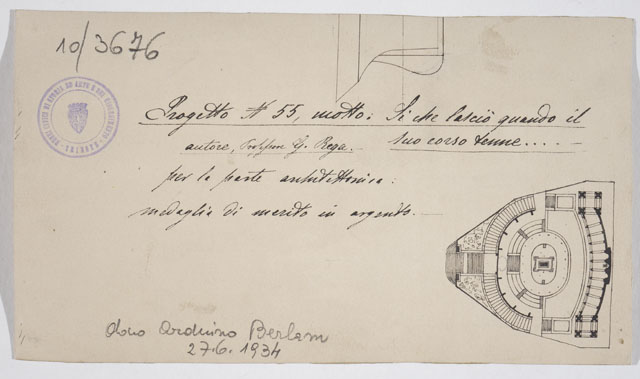 10/3676
Progetto N 55, motto: Si che lasciò quando il
autore, Professor G. Rega. suo corso tenne.....
per la parte architettonica:
medaglia di merito in argento.
dono Arduino Berlam
27.6.1934